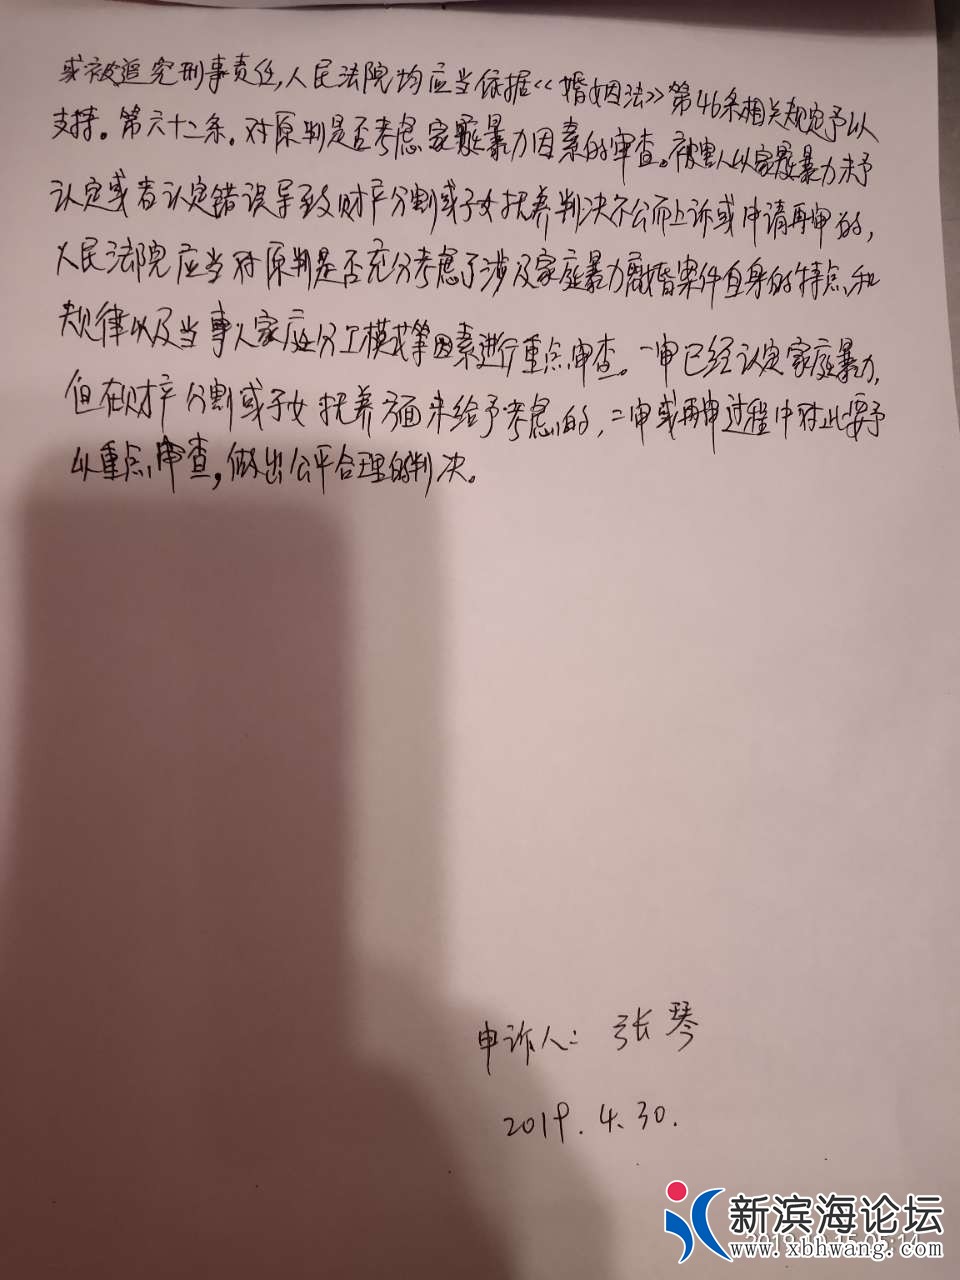 或被追究刑事责任,人民法院均应当依据<<婚姻法>>第46条相关规定予以
支持。第六十二条。对原判是否考虑家庭暴力因素的审查。被害人以家庭暴力未予
认定或者认定错误导致财产分割或子女抚养判决不公而上诉或申请再审的,
人民法院应当对原判是否充分考虑了涉及家庭暴力离婚案件自身的特点和
规律以及当事人家庭分工模式等因素进行重点审查。一审已经认定家庭暴力,
但在财产分割或子女抚养方面未给予考虑的,二审或再审过程中对此要予
以重点审查,做出公平合理的判决。
申诉人: 张琴
2019.4.30.
新滨海论坛
www.xbhwang.com